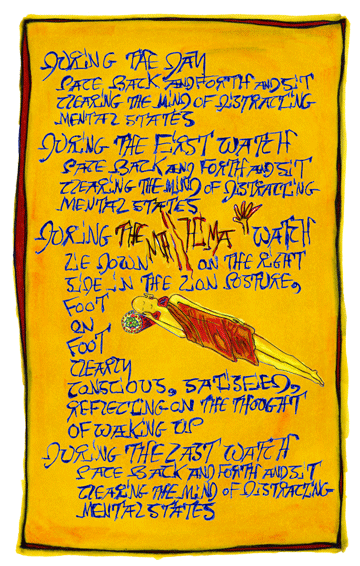 DURING THE DAY
PACE BACK AND FORTH AND SIT
CLEARING THE MIND OF DISTRACTING
MENTAL STATES
DURING THE FIRST WATCH
PACE BACK AND FORTH AND SIT
CLEARING THE MIND OF DISTRACTING
MENTAL STATES
DURING THE MAJJHIMA WATCH
LIE DOWN ON THE RIGHT
SIDE IN THE LION POSTURE,
FOOT
ON
FOOT
CLEARLY
CONSCIOUS, SATISEED,
REFLECTING ON THE THOUGHT
OF WAKING UP
DURING THE LAST WATCH
PACE BACK AND FORTH AND SIT
CLEARING THE MIND OF DISTRACTING
MENTAL STATES